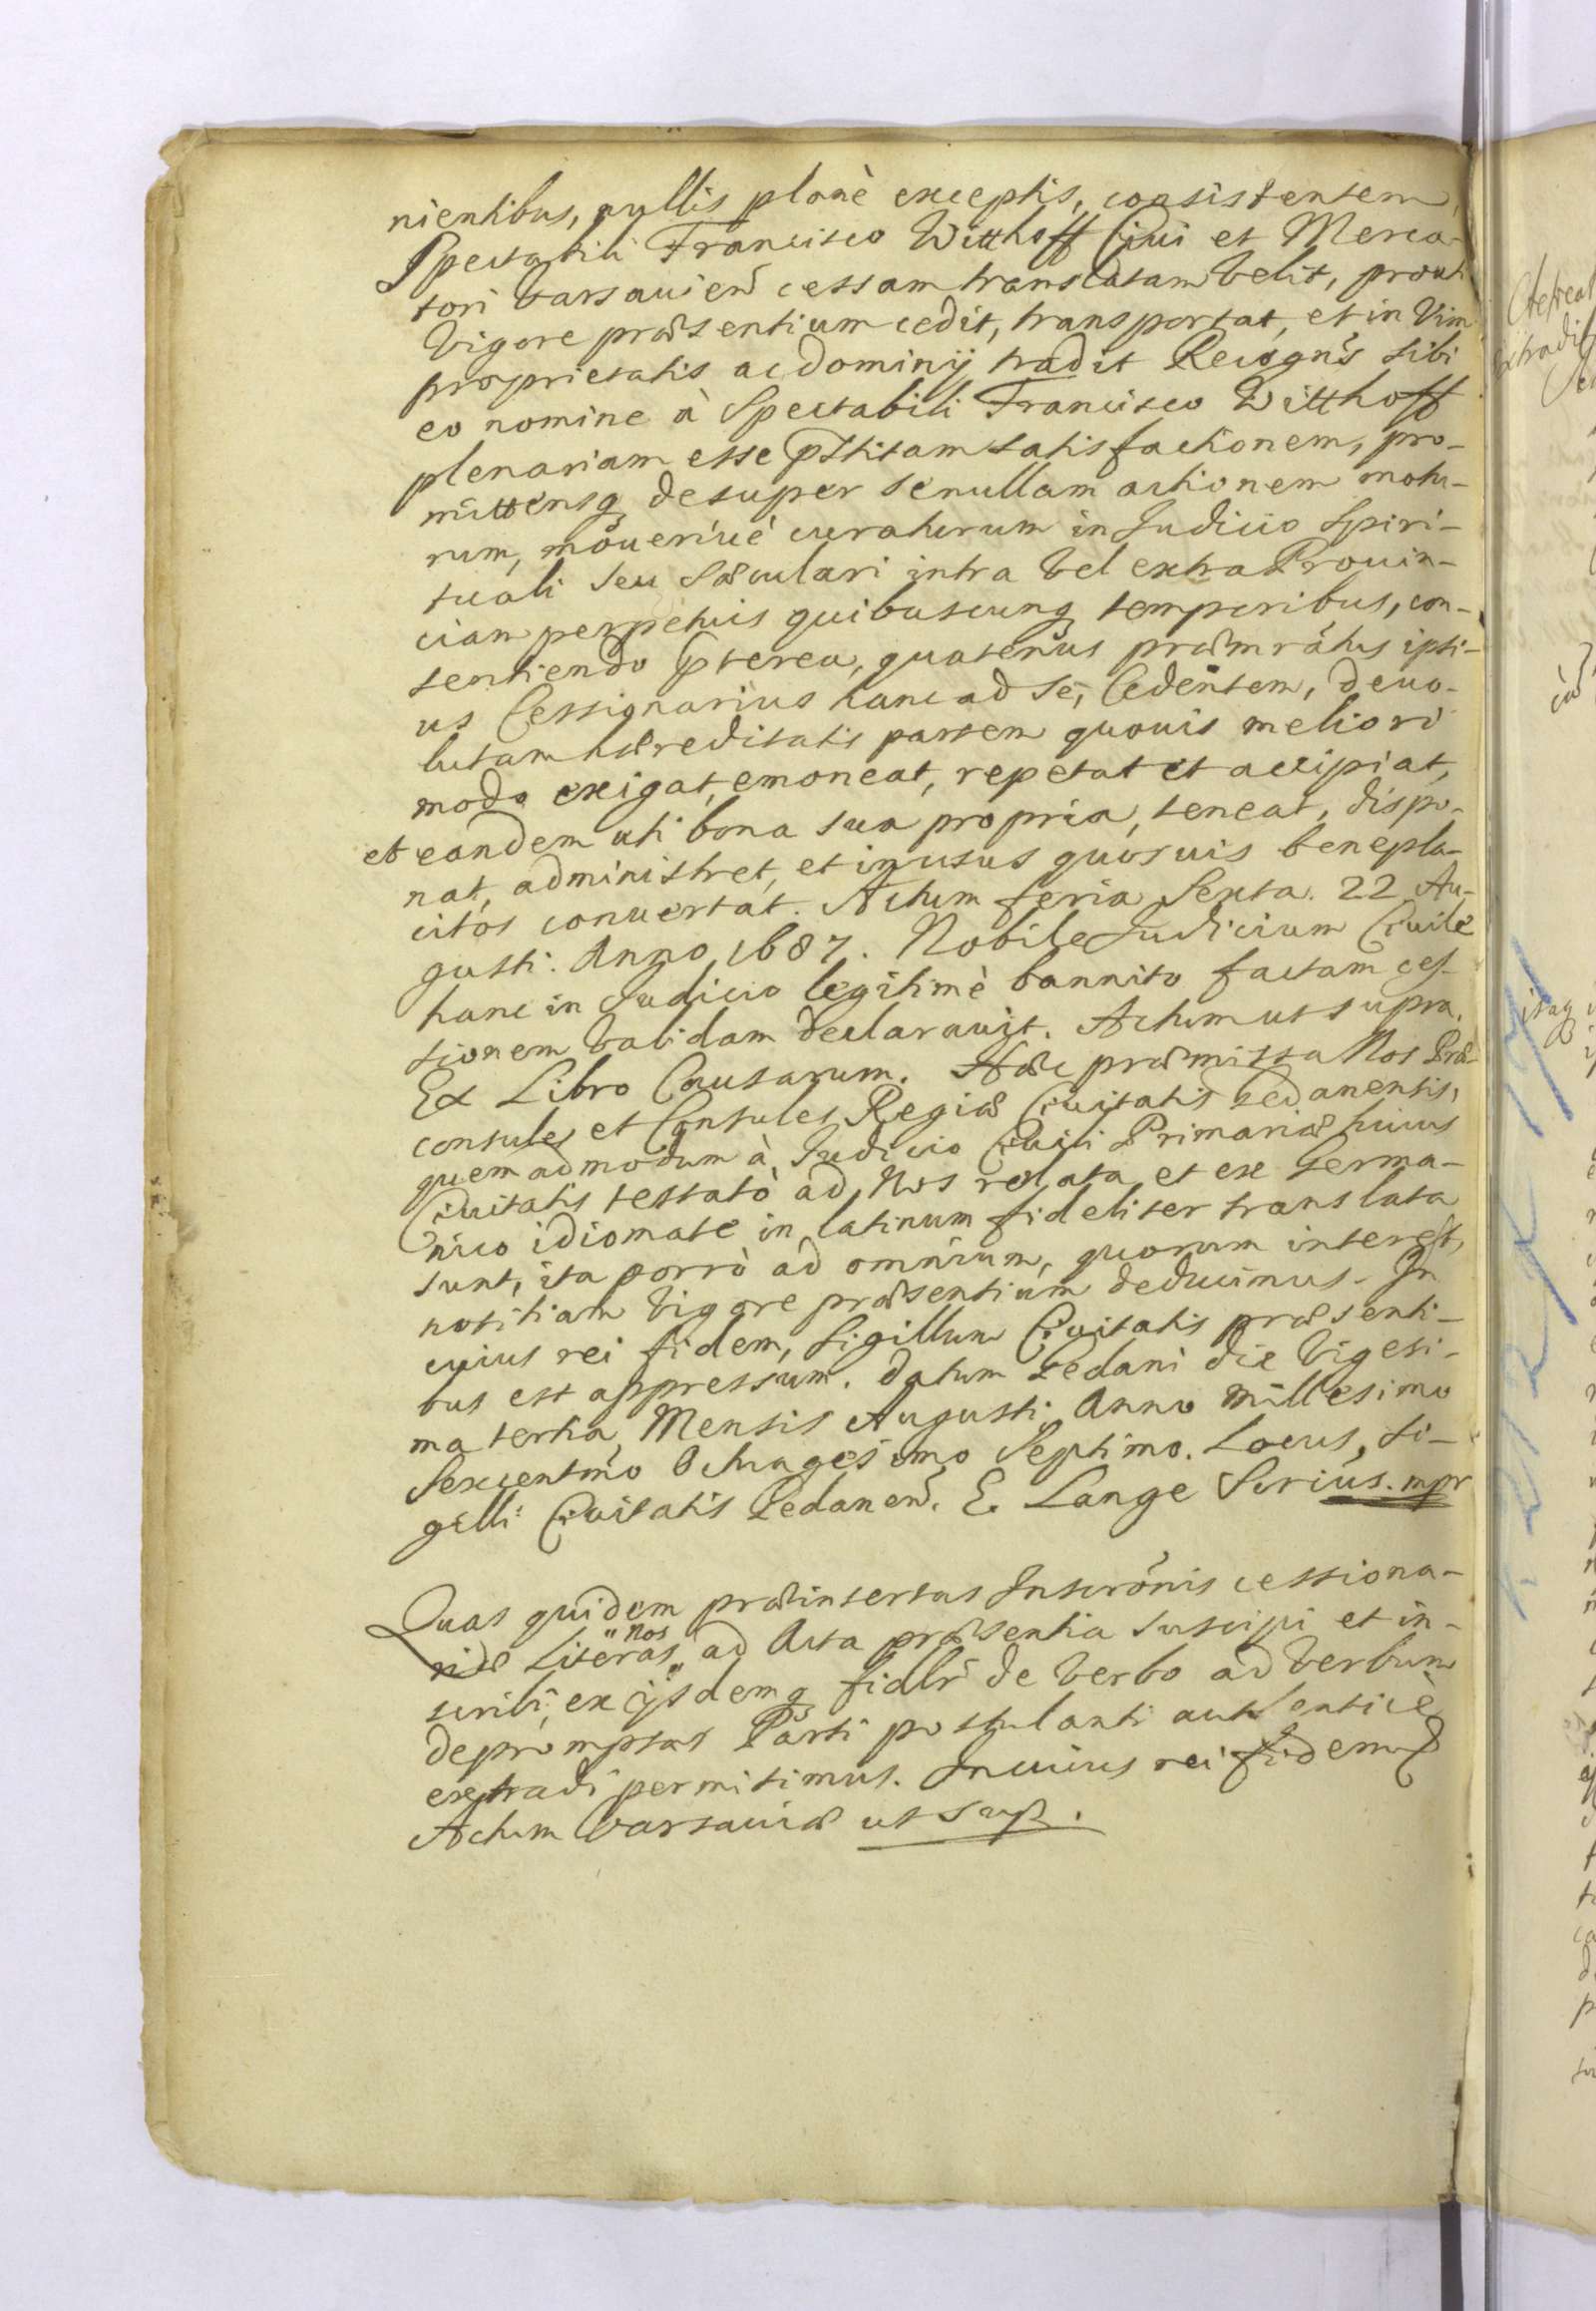 nientibus, nullis planè exceptis, consistentem,
Spectabili Francisco Witthoff Civi et Merca-
tori Varsavien̄ cessam translatam velit, prout
vigore præsentium cedit, transportat, et in vim
proprietatis ac dominij tradit Recogn̄s sibi
eo nomine à Spectabili Francisco Witthoff
plenariam esse p̄stitam satisfactionem, pro-
mittensq desuper se nullam actionem motu-
rum, moueriuè curaturum in Judicio Spiri-
tuali seu Sæculari intra vel extra Prouin-
ciam perpetuis quibuscunq temporibus, con-
sentiendo p̄terea, quatenus præmratus ipsi-
us Cessionarius hanc ad se, Cedentem, deuo-
lutam hæreditatis partem quouis meliori
modo exigat, emoneat, repetat et accipiat,
et eandem uti bona sua propria, teneat, dispo-
nat, administret, et in usus quosuis benepla-
citos conuertat. Actum feria Sexta. 22 Au-
gusti. Anno 1687. Nobile Judicium Ciuile
hanc in Judicio legitimè bannito factam ces-
sionem validam declarauit. Actum ut supra.
Ex Libro Causarum. Hæc præmissa Nos Præ-
consules et Consules Regiæ Ciuitatis Gedanensis,
quemadmodum à Judicio Ciuili Primariæ huius
Ciuitatis testatò ad Nos relata et ex Germa-
nico idiomate in latinum fideliter translata
sunt, ita porrò ad omnium, quorum interest,
notitiam vigore præsentium deducimus. In
cuius rei fidem, Sigillum Ciuitatis præsenti-
bus est appressum. Datum Gedani die Vigesi-
ma tertia, Mensis Augusti Anno Millesimo
Sexcentmo Octuagesimo Septimo. Locus, Si-
gilli Ciuitatis Gedanen̄. E. Lange Secrius. mpr
Quas quidem præinsertas Inscrōnis cessiona-
riæ Literas nos ad Acta præsentia suscipi et in-
scribi, ex ijsdemq fidlr̄ de verbo ad verbum
depromptas Parti postulanti authenticè
extradi permisimus. In cuius rei fidem
Actum Varsauiæ ut sup.